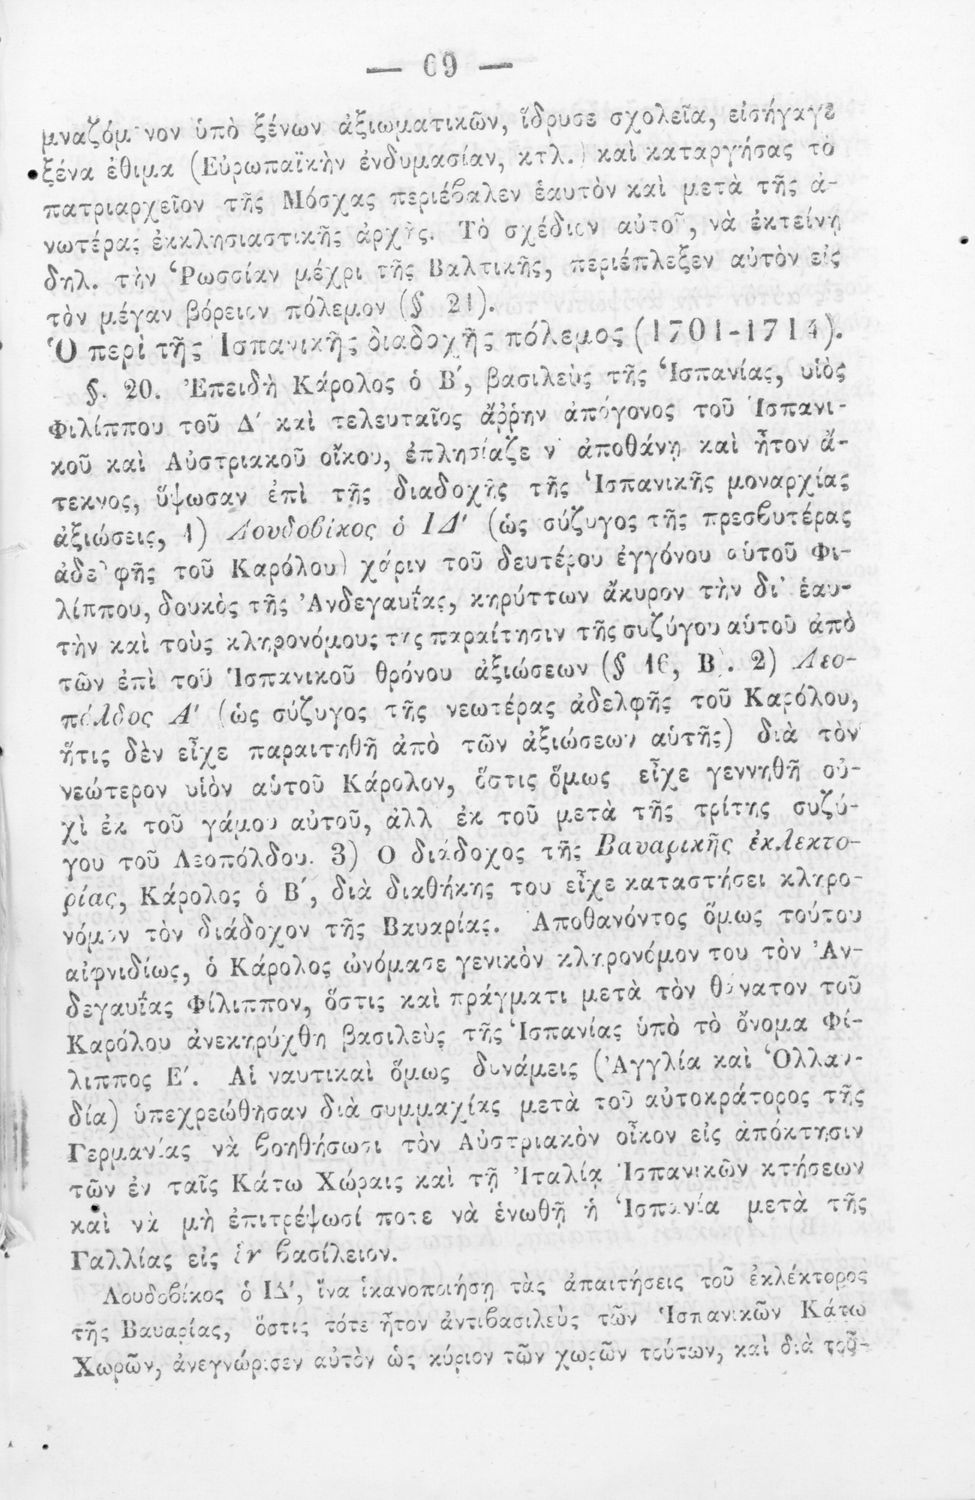 — 69 —
μναζόμενον ὑπὸ ξένων ἀξιωματικῶν, ἵδρυσε σχολεῖα, εἰσήγαγε
ξένα ἔθιμα (Εὐρωπαϊκὴν ἐνδυμασίαν, κτλ.) καὶ καταργήσας τὸ
πατριαρχεῖον τῆς Μόσχας περιέβαλεν ἑαυτὸν καὶ μετὰ τῆς ἀ-
νωτέρας ἐκκλησιαστικῆς ἀρχῆς. Τὸ σχέδιον αὐτοῦ, νὰ ἐκτείνῃ
δηλ. τὴν Ῥωσσίαν μέχρι τῆς Βαλτικῆς, περιέπλεξεν αὐτὸν εἰς
τὸν μέγαν βόρειον πόλεμον (§ 21).
Ὁ περὶ τῆς Ἱσπανικῆς διαδοχῆς πόλεμος (1701-1714).
§. 20. Ἐπειδὴ Κάρολος ὁ Β΄, βασιλεὺς τῆς Ἱσπανίας, υἱὸς
Φιλίππου τοῦ Δ΄ καὶ τελευταῖος ἄῤῥην ἀπόγονος τοῦ Ἱσπανι-
κοῦ καὶ Αὐστριακοῦ οἴκου, ἐπλησίαζε ν᾿ ἀποθάνῃ καὶ ἦτον ἄ-
τεκνος, ὕψωσαν ἐπὶ τῆς διαδοχῆς τῆς Ἱσπανικῆς μοναρχίας
ἀξιώσεις, 1) Λουδοβίκος ὁ ΙΔ΄ (ὡς σύζυγος τῆς πρεσβυτέρας
ἀδελφῆς τοῦ Καρόλου) χάριν τοῦ δευτέρου ἐγγόνου αὑτοῦ Φι-
λίππου, δουκὸς τῆς Ἀνδεγαυΐας, κηρύττων ἄκυρον τὴν δι᾿ ἑαυ-
τὴν καὶ τοὺς κληρονόμους της παραίτησιν τῆς συζύγου αὑτοῦ ἀπὸ
τῶν ἐπὶ τοῦ Ἱσπανικοῦ θρόνου ἀξιώσεων (§ 16, Β). 2) Λεο-
πόλδος Α΄ (ὡς σύζυγος τῆς νεωτέρας ἀδελφῆς τοῦ Καρόλου,
ἥτις δὲν εἶχε παραιτηθῆ ἀπὸ τῶν ἀξιώσεων αὑτῆς) διὰ τὸν
νεώτερον υἱὸν αὑτοῦ Κάρολον, ὅστις ὅμως εἶχε γεννηθῆ οὐ-
χὶ ἐκ τοῦ γάμου αὐτοῦ, ἀλλ ἐκ τοῦ μετὰ τῆς τρίτης συζύ-
γου τοῦ Λεοπόλδου. 3) Ο διάδοχος τῆς Βαυαρικῆς ἐκλεκτο-
ρίας, Κάρολος ὁ Β΄, διὰ διαθήκης του εἶχε καταστήσει κληρο-
νόμον τὸν διάδοχον τῆς Βαυαρίας. Ἀποθανόντος ὅμως τούτου
αἰφνιδίως, ὁ Κάρολος ὠνόμασε γενικὸν κληρονόμον του τὸν Ἀν-
δεγαυΐας Φίλιππον, ὅστις καὶ πράγματι μετὰ τὸν θάνατον τοῦ
Καρόλου ἀνεκηρύχθη βασιλεὺς τῆς Ἱσπανίας ὑπὸ τὸ ὄνομα Φί-
λιππος Ε΄. Αἱ ναυτικαὶ ὅμως δυνάμεις (Ἀγγλία καὶ Ὁλλαν-
δία) ὑπεχρεώθησαν διὰ συμμαχίας μετὰ τοῦ αὐτοκράτορος τῆς
Γερμανίας νὰ βοηθήσωσι τὸν Αὐστριακὸν οἶκον εἰς ἀπόκτησιν
τῶν ἐν ταῖς Κάτω Χώραις καὶ τῇ Ἰταλίᾳ Ἱσπανικῶν κτήσεων
καὶ νὰ μὴ ἐπιτρέψωσί ποτε νὰ ἑνωθῇ ἡ Ἱσπανία μετὰ τῆς
Γαλλίας εἰς ἓν βασίλειον.
Λουδοβίκος ὁ ΙΔ΄, ἵνα ἱκανοποιήσῃ τὰς ἀπαιτήσεις τοῦ ἐκλέκτορος
τῆς Βαυαρίας, ὅστις τότε ἦτον ἀντιβασιλεὺς τῶν Ἱσπανικῶν Κάτω
Χωρῶν, ἀνεγνώρισεν αὐτὸν ὡς κύριον τῶν χωρῶν τούτων, καὶ διὰ τοῦ-